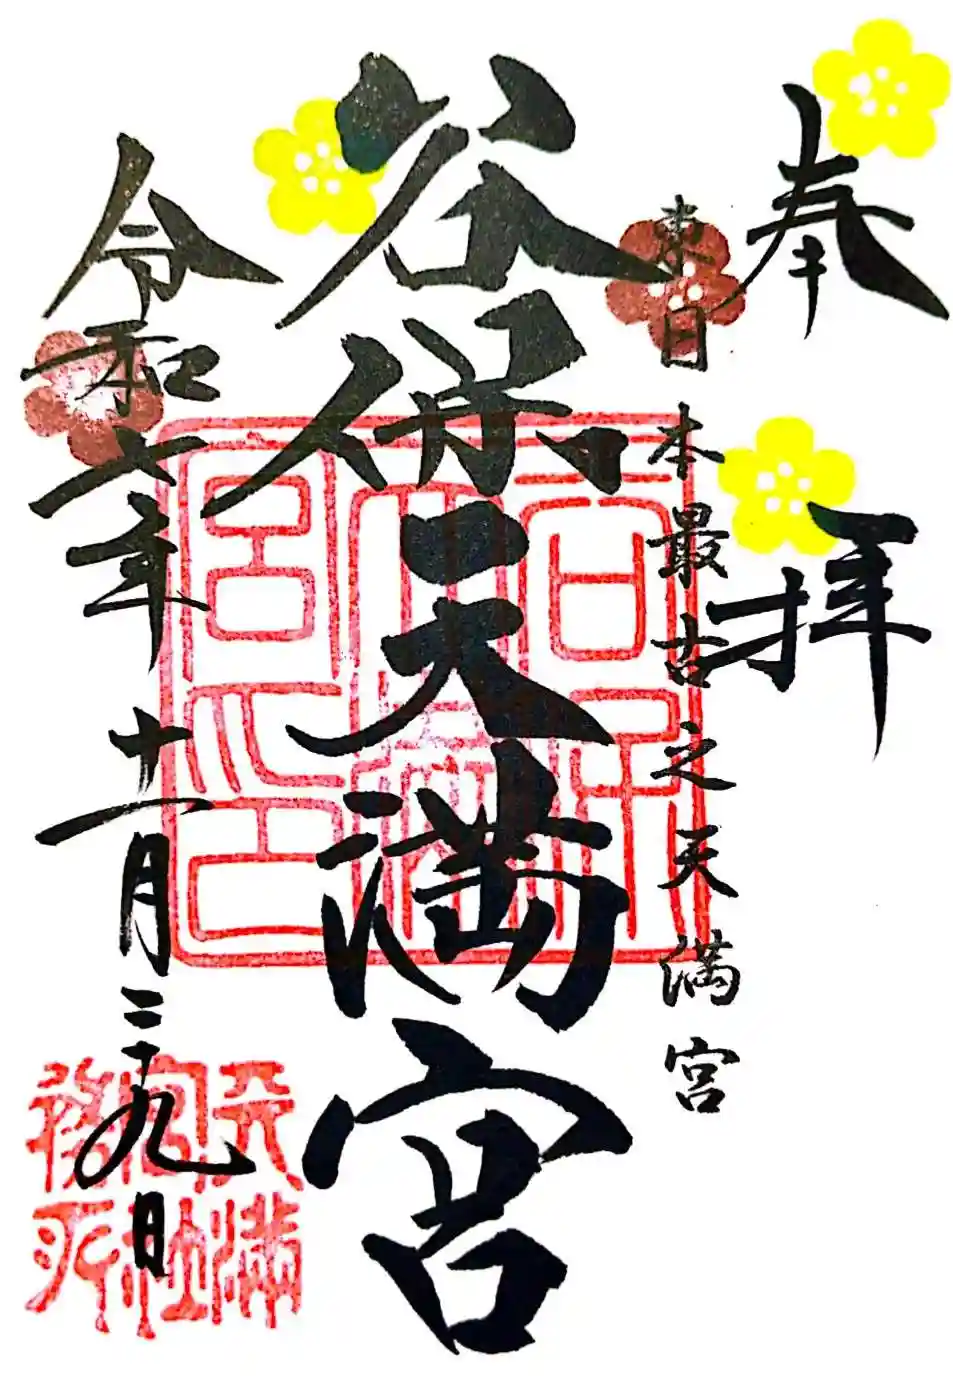 奉拝
東日本最古之天満宮
谷保天満宮
令和七年十一月二十九日
谷保
天満
宮印
天満
宮社
務所